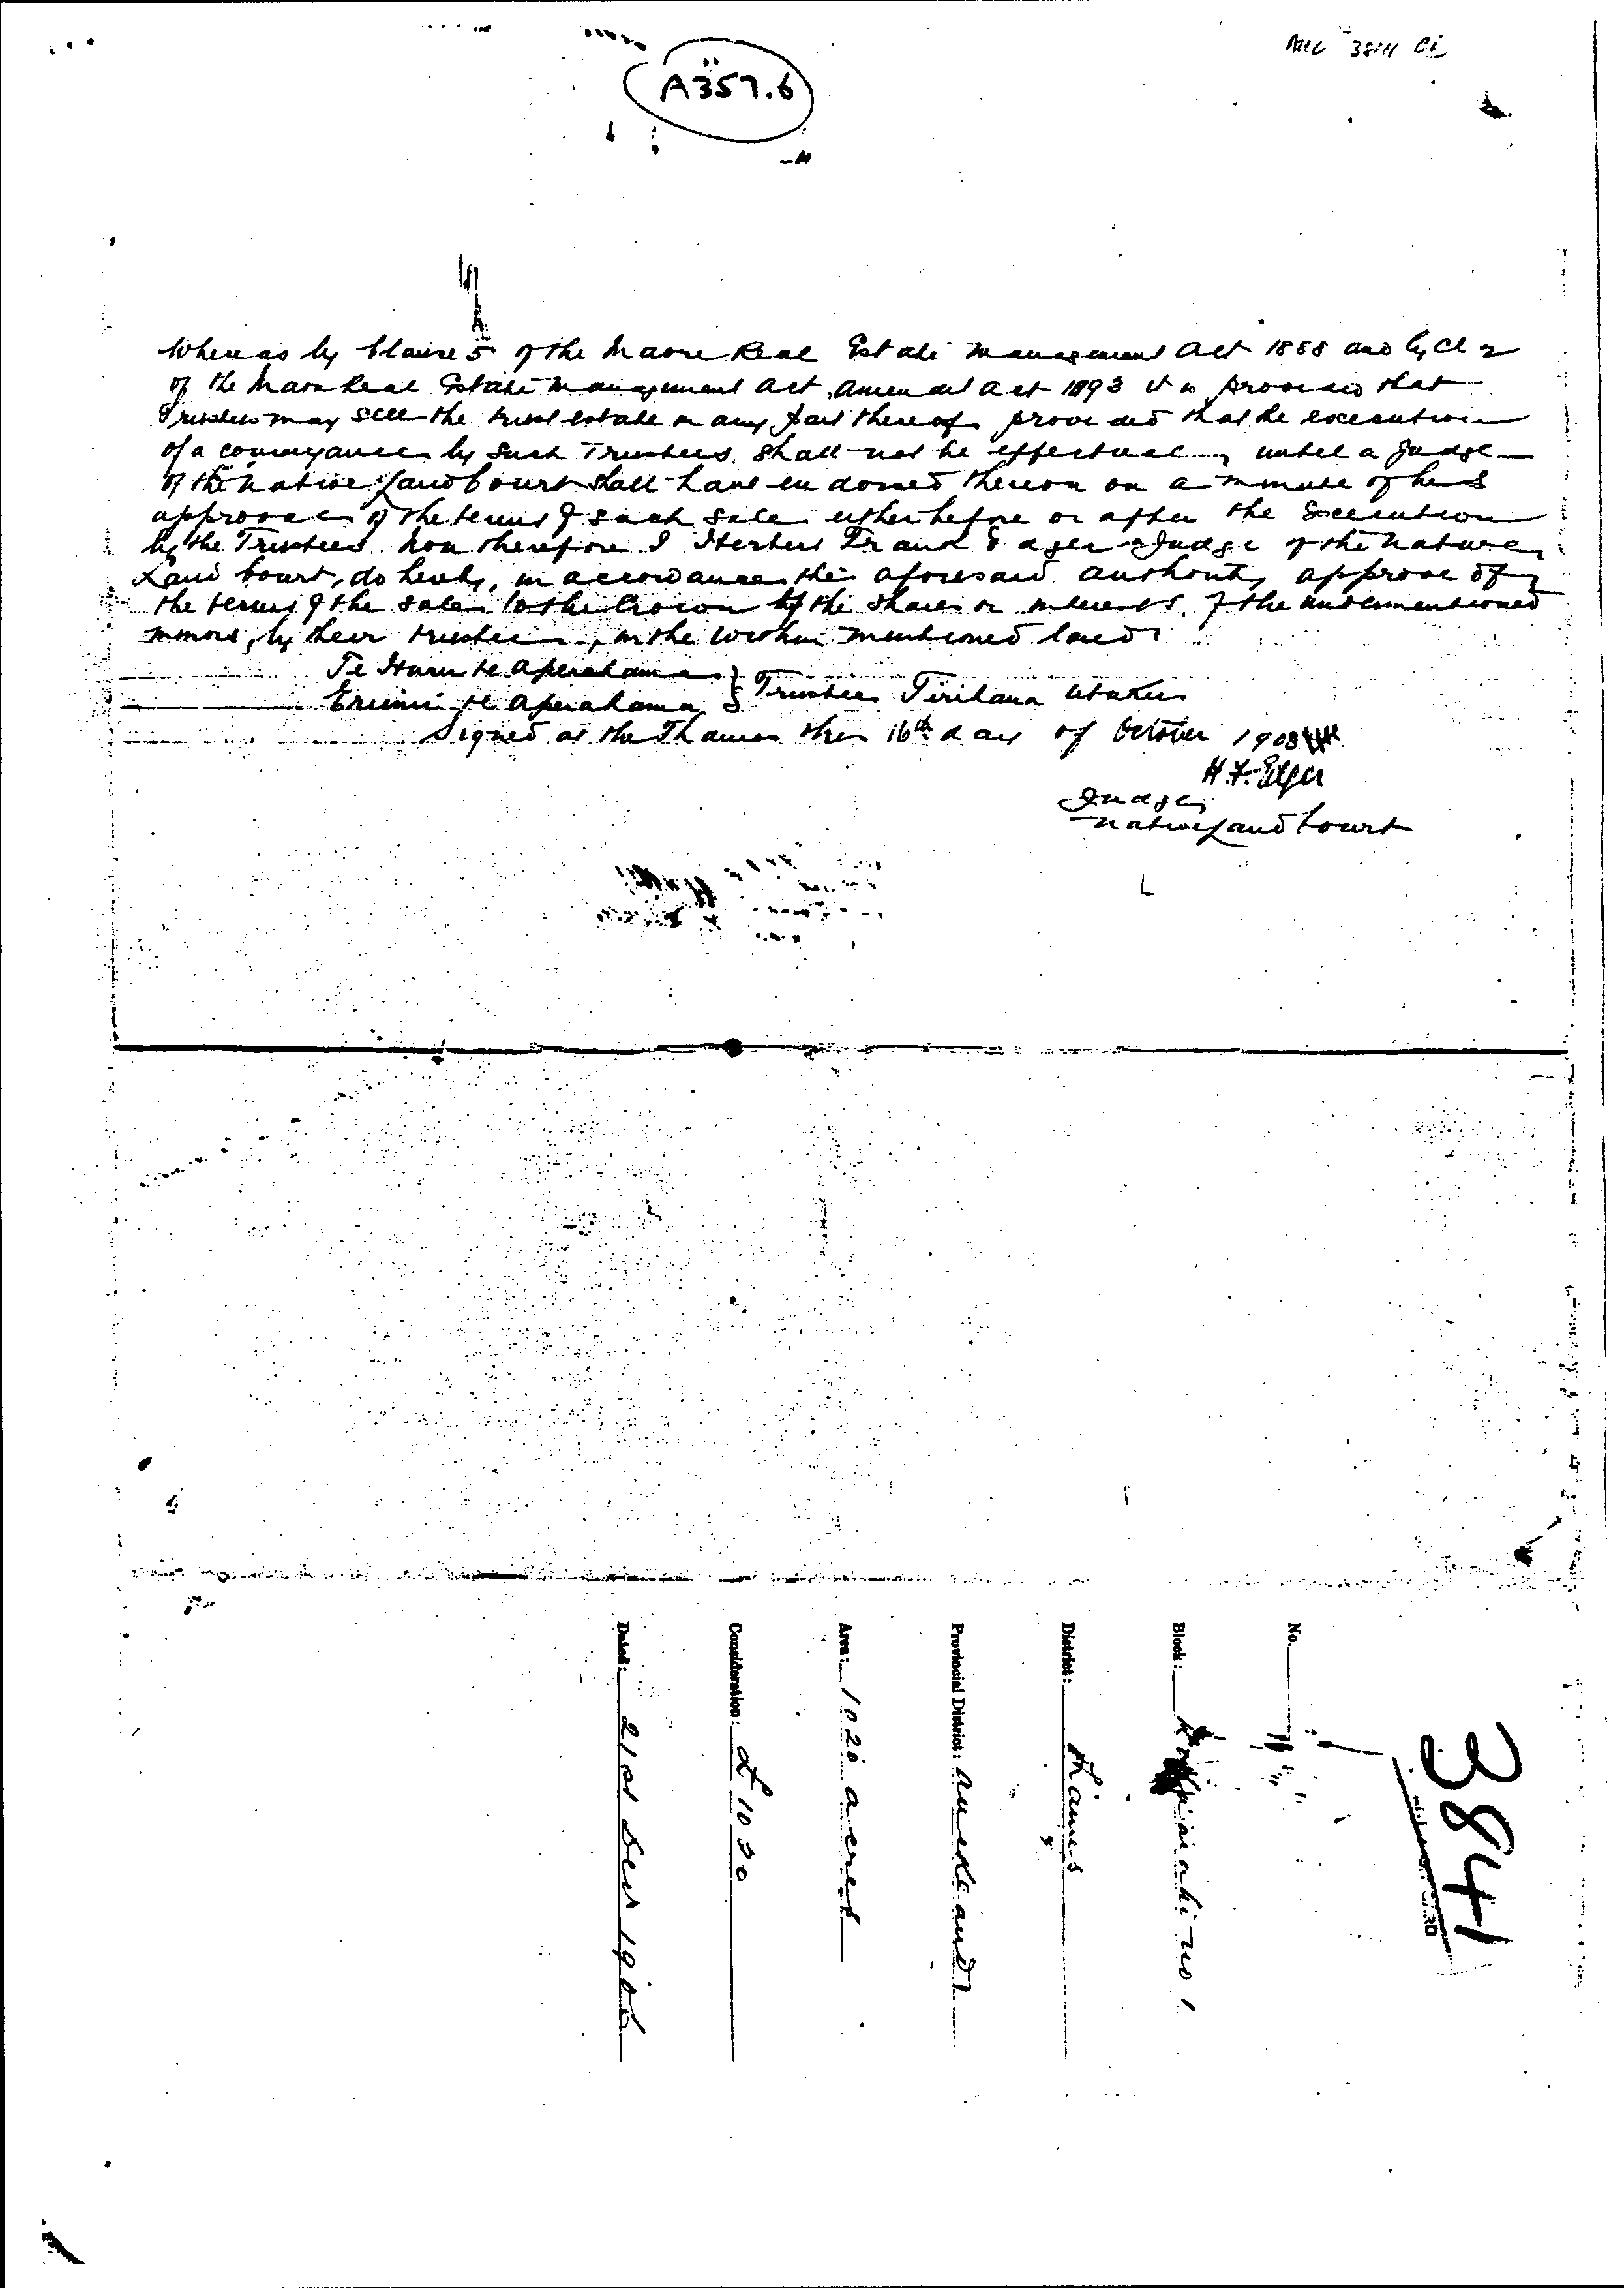 A357.6
AUC 3841 Ci
Whereas by Clause 5 of the Maori Real Estate management Act 1888 and by Cl 2
of the Maori Real Estate Management Act, Amendt Act 1893 it is provided that
Trustees may sell the trust estate or any part thereof provided that the execution
of a conveyance by such Trustees shall not be effectual, until a Judge
of the Native Land Court shall have endorsed thereon a minute of his
approval of the terms of such sale either before or after the Execution
by the Trustees. Now therefore I Herbert Frank Edger a Judge of the Native
Land Court, do hereby, in accordance the aforesaid authority approve of
the terms of the sale to the Crown of the shares or interests of the undermentioned
minors, by their trustees, in the within mentioned land.
Te Huru te Aperahama
te Aperahama } Trustee Tirihana
Signed at the Thames this 16th day of October 1908
H.F. Edger
Judge,
Native Land Court
3841
No.
Block: no 1
District: Thames
Provincial District: Auckland
Area: 1020 acres
Consideration: £1020
Dated: 21st Dec 1906